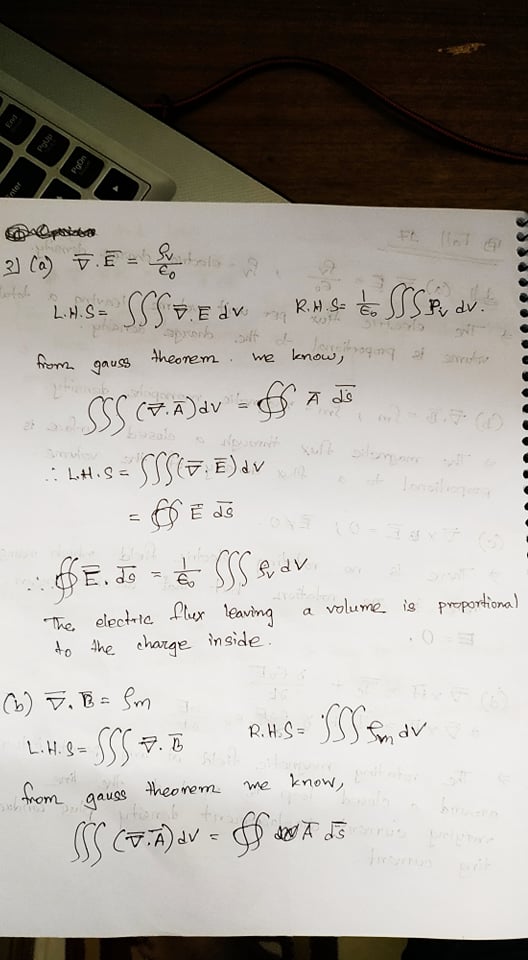 End
PgUp
PgDn
Enter
3) (a) ∇̅. E̅ = ρv/ϵ0
L.H.S = ∭ ∇̅. E dv R.H.S = 1/ϵ0 ∭ ρv dv.
from gauss theorem. we know,
∭ (∇̅. A̅) dv = ∯ A̅ d̅s̅
∴ L.H.S = ∭ (∇̅. E̅) dv
= ∯ E̅ d̅s̅
∴ ∯ E̅. d̅s̅ = 1/ϵ0 ∭ ρv dv
The electric flux leaving a volume is proportional
to the charge inside.
(b) ∇̅. B̅ = ρm
L.H.S = ∭ ∇̅. B̅ R.H.S = ∭ ρm dv
from gauss theorem we know,
∭ (∇̅. A̅) dv = ∯ A̅ d̅s̅